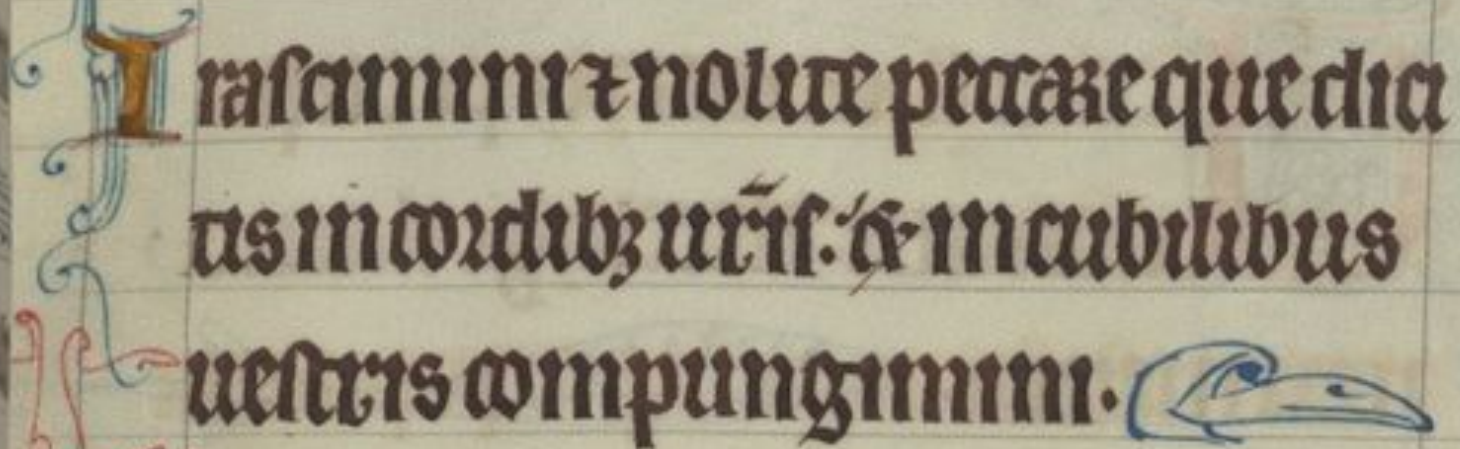 Iraſcimini ⁊ nolite peccare que dici
tis in cordibꝫ ur̄iſ: & in cubilibus
ueſtris compungimini.